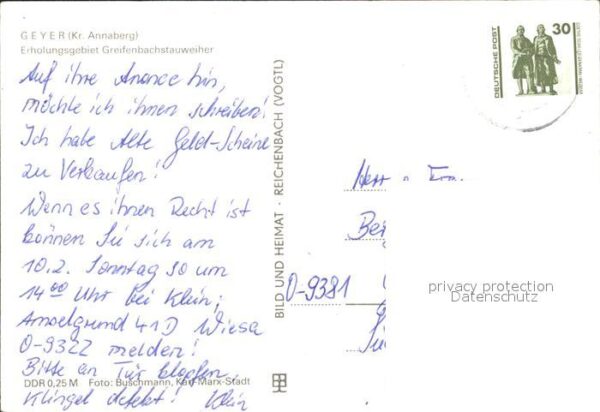 GEYER (Kr. Annaberg)
Erholungsgebiet Greifenbachstauweiher
Auf ihre Anonce hin,
möchte ich ihnen schreiben!
Ich habe Alte Geld-Scheine
zu Verkaufen!
Wenn es ihnen Recht ist
können Sie sich am
10.2. Sonntag so um
14⁰⁰ Uhr bei Klein,
Amselgrund 41D Wiesa
O-9322 melden!
Bitte an Tür klopfen,
DDR 0,25 M Foto: Buschmann, Karl-Marx-Stadt
Klingel defekt! Klein
BILD UND HEIMAT · REICHENBACH (VOGTL)
DEUTSCHE POST
30
Herr
O-9381
privacy protection
Datenschutz